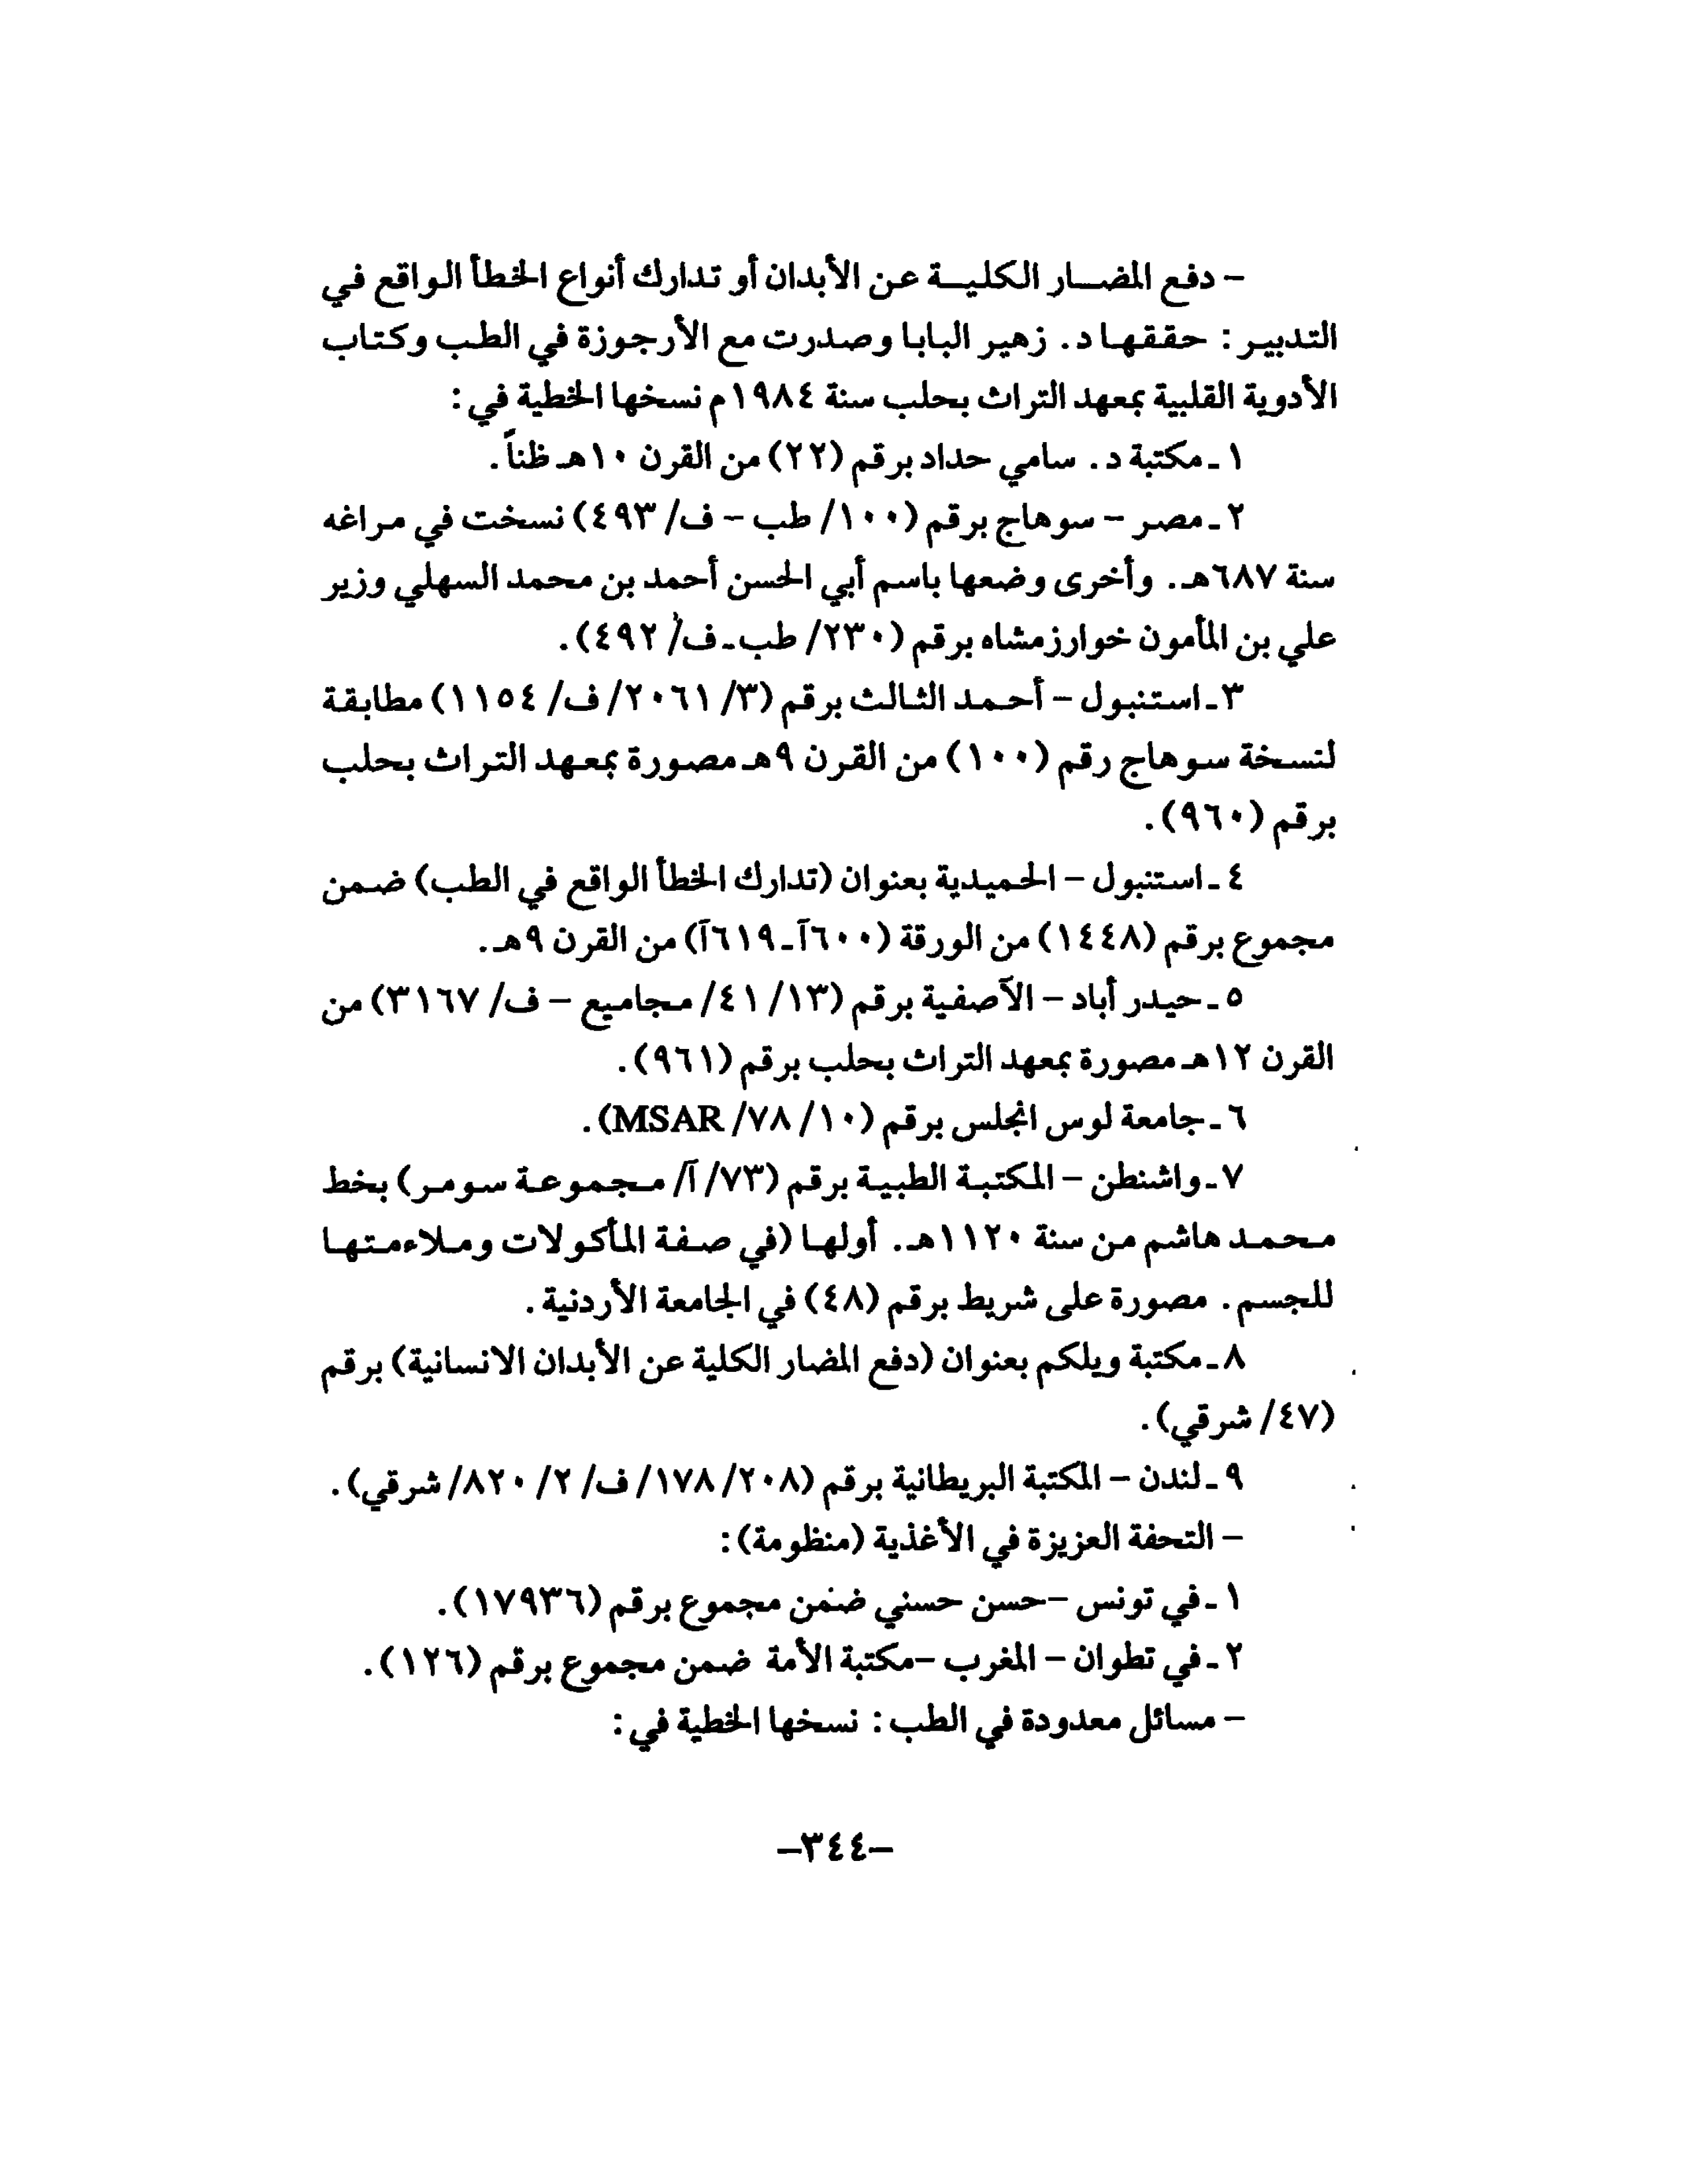 – دفع المضار الكلية عن الأبدان أو تدارك أنواع الخطأ الواقع في
التدبير : حققها د . زهير البابا وصدرت مع الأرجوزة في الطب وكتاب
الأدوية القلبية بمعهد التراث بحلب سنة ١٩٨٤م نسخها الخطية في :
١ ـ مكتبة د . سامي حداد برقم (٢٢) من القرن ١٠هـ ظناً .
٢ ـ مصر – سوهاج برقم (١٠٠/ طب – ف/ ٤٩٣) نسخت في مراغه
سنة ٦٨٧هـ . وأخرى وضعها باسم أبي الحسن أحمد بن محمد السهلي وزير
علي بن المأمون خوارزمشاه برقم (٢٣٠/ طب ـ ف/ ٤٩٢) .
٣ ـ استنبول – أحمد الثالث برقم (٣/ ٢٠٦١/ ف/ ١١٥٤) مطابقة
لنسخة سوهاج رقم (١٠٠) من القرن ٩هـ مصورة بمعهد التراث بحلب
برقم (٩٦٠) .
٤ ـ استنبول – الحميدية بعنوان (تدارك الخطأ الواقع في الطب) ضمن
مجموع برقم (١٤٤٨) من الورقة (٦٠٠آ ـ ٦١٩آ) من القرن ٩هـ .
٥ ـ حيدر أباد – الآصفية برقم (١٣/ ٤١/ مجاميع – ف/ ٣١٦٧) من
القرن ١٢هـ مصورة بمعهد التراث بحلب برقم (٩٦١) .
٦ ـ جامعة لوس انجلس برقم (١٠/ ٧٨/ MSAR) .
٧ ـ واشنطن – المكتبة الطبية برقم (٧٣/ آ/ مجموعة سومر) بخط
محمد هاشم من سنة ١١٢٠هـ . أولها (في صفة المأكولات وملاءمتها
للجسم . مصورة على شريط برقم (٤٨) في الجامعة الأردنية .
٨ ـ مكتبة ويلكم بعنوان (دفع المضار الكلية عن الأبدان الانسانية) برقم
(٤٧/ شرقي) .
٩ ـ لندن – المكتبة البريطانية برقم (٢٠٨/ ١٧٨/ ف/ ٢/ ٨٢٠/ شرقي) .
– التحفة العزيزة في الأغذية (منظومة) :
١ ـ في تونس –حسن حسني ضمن مجموع برقم (١٧٩٣٦) .
٢ ـ في تطوان – المغرب –مكتبة الأمة ضمن مجموع برقم (١٢٦) .
– مسائل معدودة في الطب : نسخها الخطية في :
–٣٤٤–